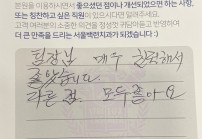 본원을 이용하시면서 좋으셨던 점이나 개선되었으면 하는 사항,
또는 칭찬하고 싶은 직원이 있으시다면 알려주세요.
고객 여러분의 소중한 의견을 정성껏 귀담아듣고 반영하여
더 큰 만족을 드리는 서울백런치과가 되겠습니다 :)
원장님 매우 친절해서
좋았습니다
다른 점 모두좋아요